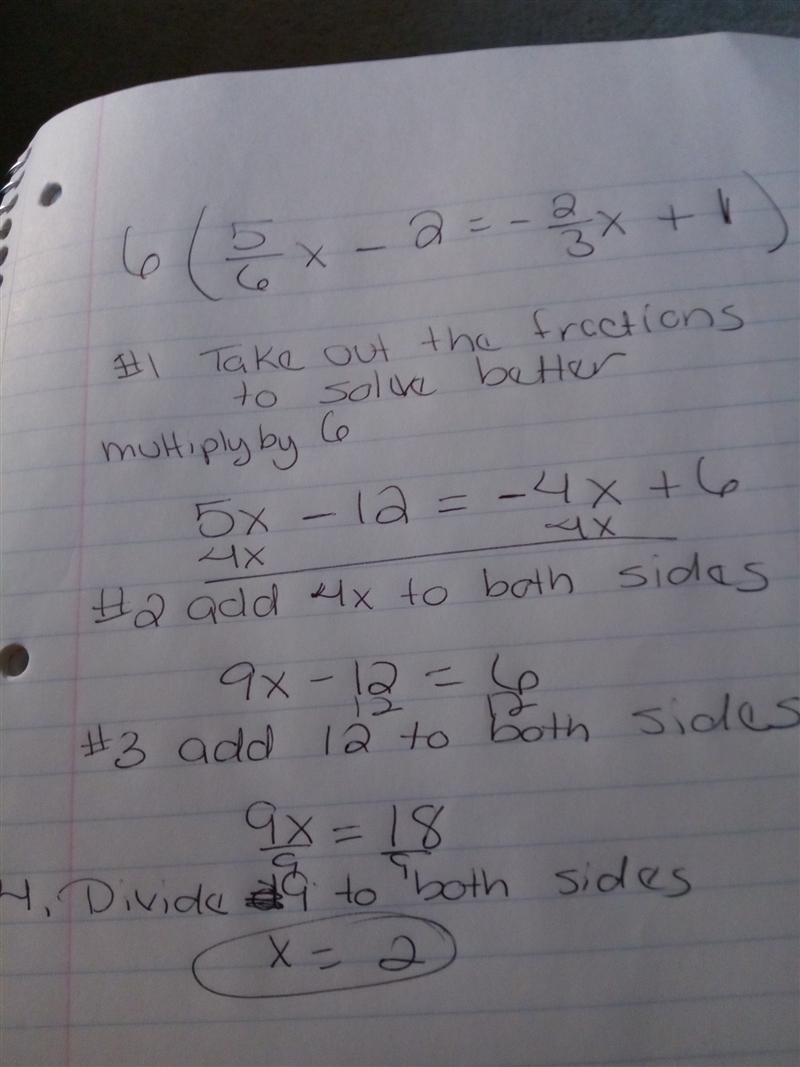 6 ( 5/6 x - 2 = - 2/3 x + 1 )
#1 Take out the fractions
to solve better
multiply by 6
5x - 12 = -4x + 6
4x 4x
#2 add 4x to both sides
9x - 12 = 6
12 12
#3 add 12 to both sides
9x = 18
9 9
4. Divide 9 to both sides
x = 2